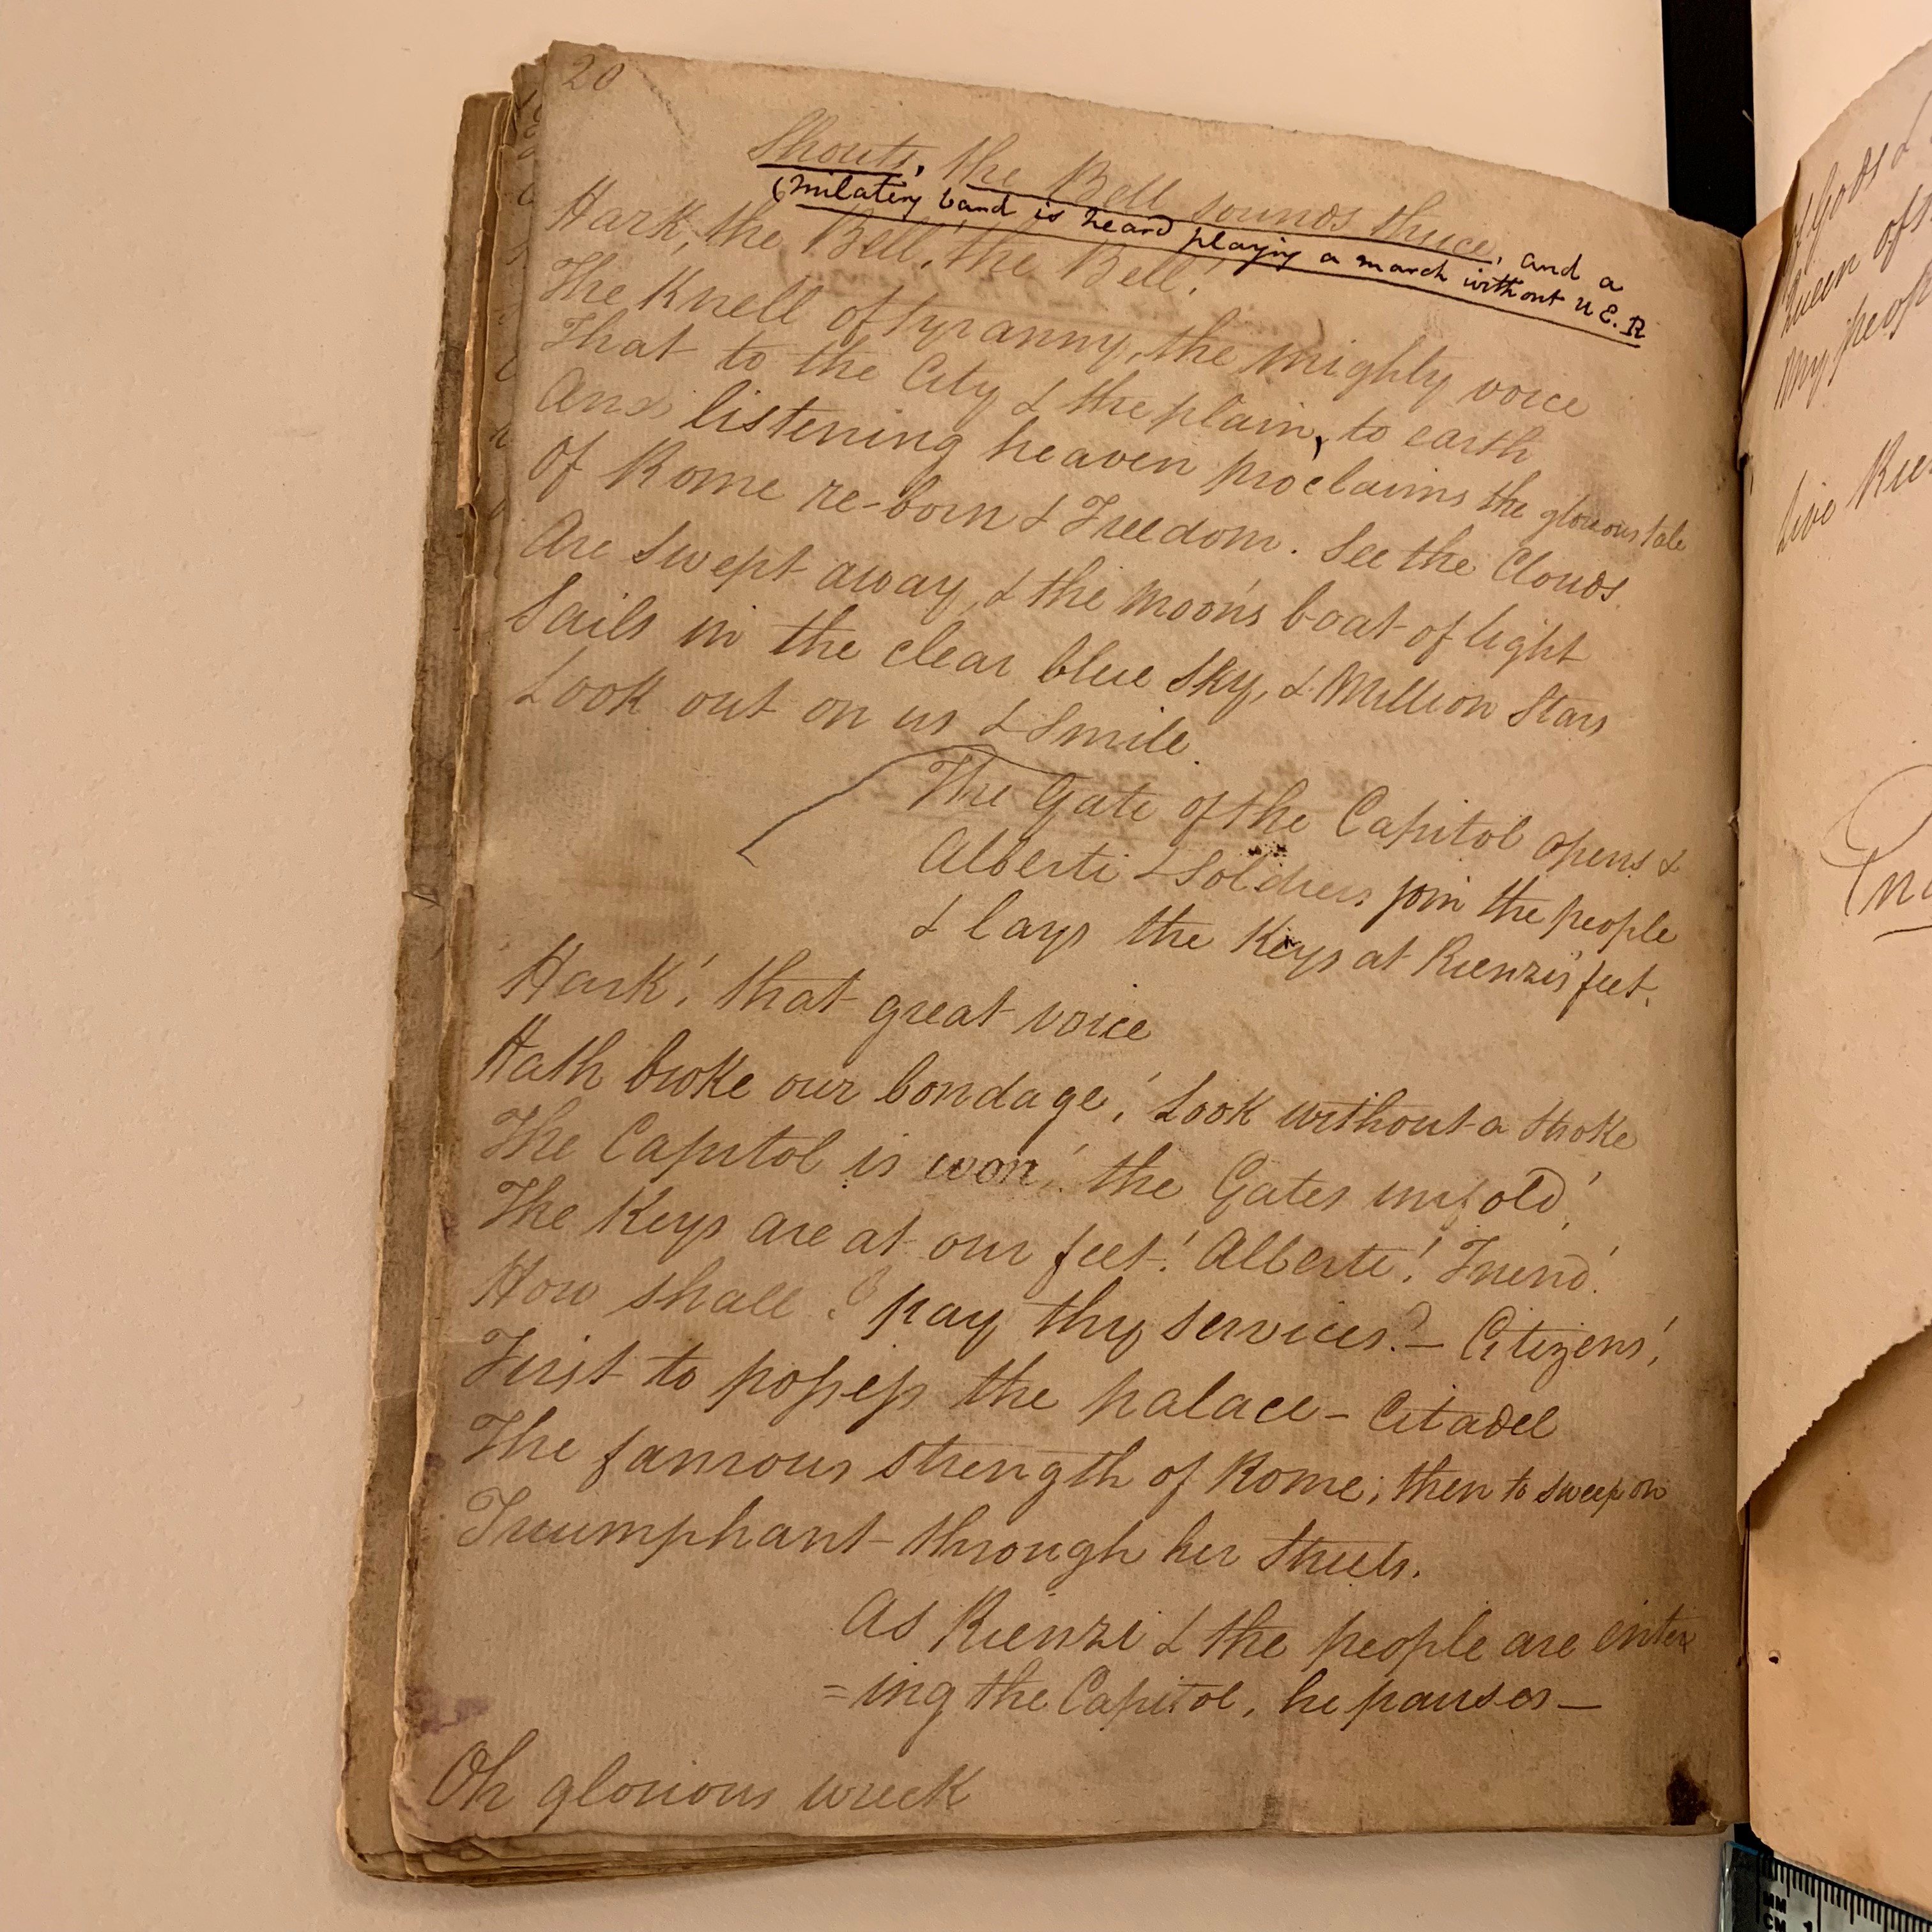 20
Shouts, the Bell sounds thrice, and a
(milatery band is heard playing a march without U.E.R
Hark, the Bell, the Bell!
The Knell of tyranny, the mighty voice
That to the City & the plain, to earth
And listening heaven proclaims the glorious tale
Of Rome re-born & Freedom. See the Clouds
Are swept away, & the moon's boat of light
Sails in the clear blue sky, & Million Stars
Look out on us & smile.
The Gate of the Capitol opens &
Alberti & Soldiers join the people
& lays the Keys at Rienzi's feet.
Hark! that great voice
Hath broke our bondage! Look without a stroke
The Capitol is won! the Gates unfold!
The Keys are at our feet! Alberti! Friend!
How shall I pay thy services? – Citizens!
First to possess the palace – Citadel
The famous strength of Rome; then to sweep on
Triumphant through her streets.
As Rienzi & the people are enter
=ing the Capitol, he pauses –
Oh glorious wreck
of Gods &
Queen of
My peop
Live Rie